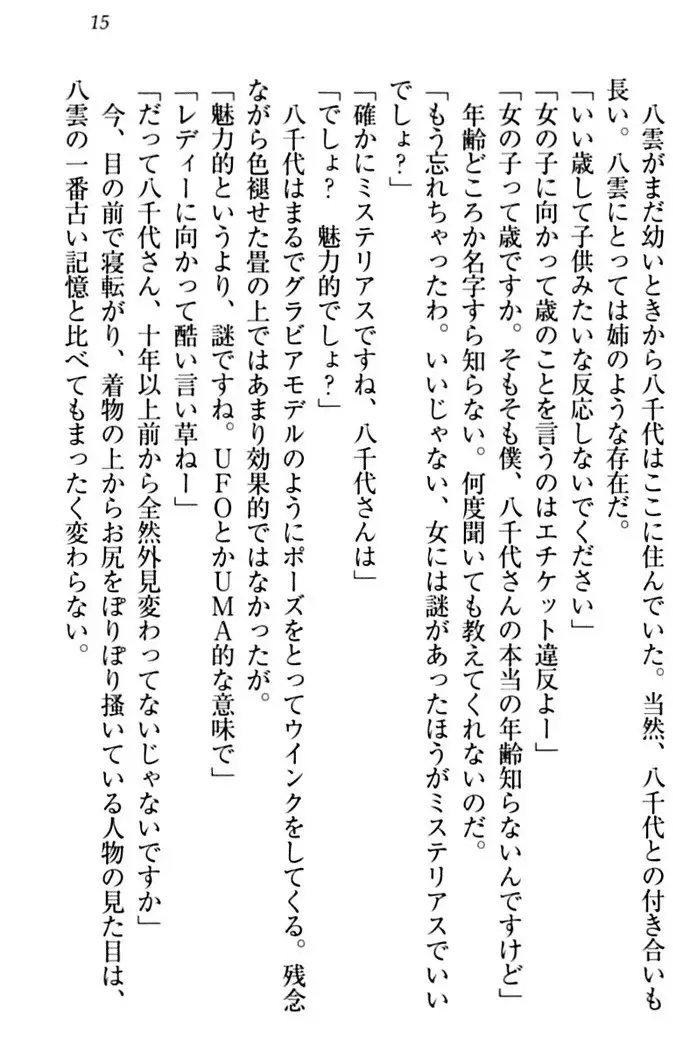 15
八雲がまだ幼いときから八千代はここに住んでいた。当然、八千代との付き合いも
長い。八雲にとっては姉のような存在だ。
「いい歳して子供みたいな反応しないでください」
「女の子に向かって歳のことを言うのはエチケット違反よー」
「女の子って歳ですか。そもそも僕、八千代さんの本当の年齢知らないんですけど」
年齢どころか名字すら知らない。何度聞いても教えてくれないのだ。
「もう忘れちゃったわ。いいじゃない、女には謎があったほうがミステリアスでいい
でしょ？」
「確かにミステリアスですね、八千代さんは」
「でしょ？　魅力的でしょ？」
八千代はまるでグラビアモデルのようにポーズをとってウインクをしてくる。残念
ながら色褪せた畳の上ではあまり効果的ではなかったが。
「魅力的というより、謎ですね。ＵＦＯとかＵＭＡ的な意味で」
「レディーに向かって酷い言い草ねー」
「だって八千代さん、十年以上前から全然外見変わってないじゃないですか」
今、目の前で寝転がり、着物の上からお尻をぽりぽり掻いている人物の見た目は、
八雲の一番古い記憶と比べてもまったく変わらない。